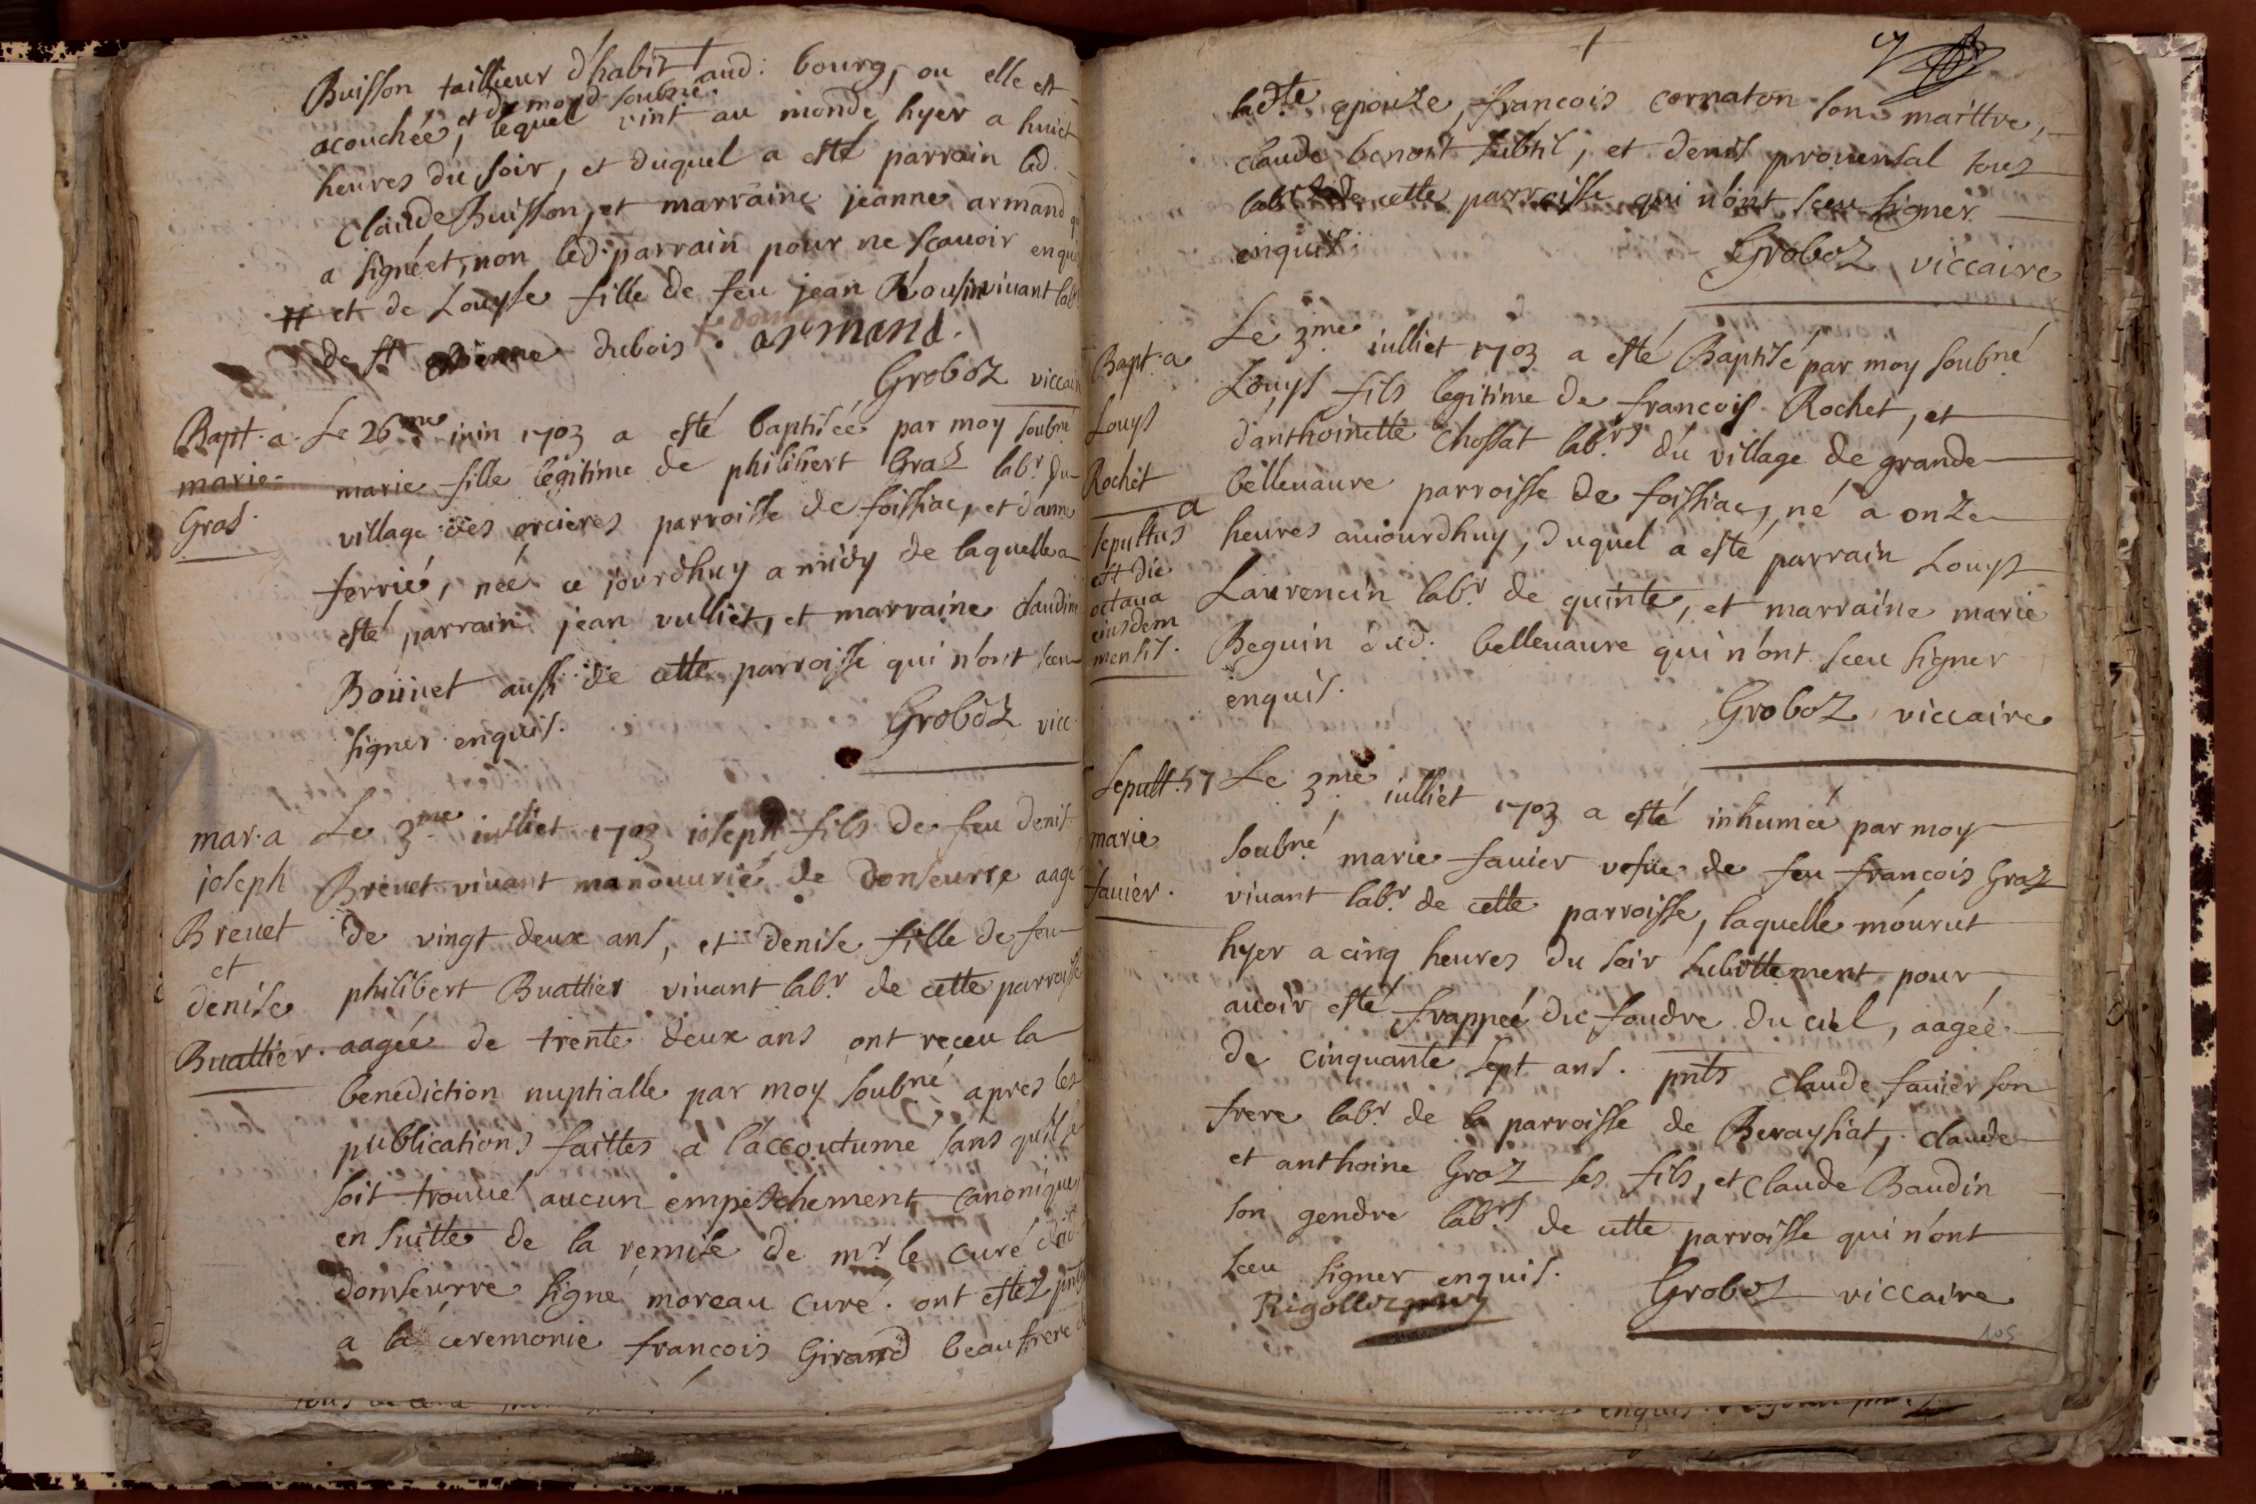 Buisson taillieur d'habit aud: bourg, ou elle est
et de moyd. soubné.
acouchée, lequel vint au monde hyer a huict
heures du soir, et duquel a esté parrain led.
Claude Buisson, et marraine jeanne armand
a signéet, non led. parrain pour ne scauoir enquis
# et de Louyse fille de feu jean Rousin viuant lab
de st dubois . armand.
Groboz viccaire
Bapt. a
marie
Gras.
Le 26me iuin 1703 a esté baptisée par moy soubné
marie fille legitime de philibert Gras labr. du
village des orcieres parroisse de foissiac, et d'anne
ferrié, née ce jourdhuy a midy de laquelle a
esté parrain jean vulliet, et marraine claudine
Bouuet aussi de cette parroisse qui n'ont sceu
signer enquis.
Groboz vicc
mar. a
joseph
Breuet
et
denise
Buattier.
Le 3me iulliet 1703 ioseph fils de feu denis
Breuet viuant manouurié de donseurre aagé
de vingt deux ans, et denise fille de feu
philibert Buattier viuant labr. de cette parroisse
aagée de trente deux ans ont receu la
benediction nuptialle par moy soubné apres les
publications faittes a l'accoutumé sans qu'il se
soit trouué aucun empeschement canonique
en suitte de la remise de mr. le curé dud.
domseurre signé moreau curé. ont estez pnts
a la ceremonie francois Girand beaufrere
7
lad.te epouze, francois cornaton son maittre,
claude benoit subtil, et denis prouensal tous
labrs de cette parroisse qui n'ont sceu signer
enquis.
Groboz viccaire
Bapt. a
Louys
Rochet
a
sepultus
est die
octaua
eiusdem
mensis.
Le 3me iulliet 1703 a esté Baptisé par moy soubné
Louys fils legitime de francois Rochet, et
d'anthoinette Chossat labrs du village de grande
belleuaure parroisse de foissiac, né a onze
heures auiourdhuy, duquel a esté parrain Louys
Laurencin labr. de quinte, et marraine marie
Beguin dud. belleuaure qui n'ont sceu signer
enquis.
Groboz viccaire
Sepult. 57
marie
fauier.
Le 3me iulliet 1703 a esté inhumée par moy
soubné marie fauier vefue de feu francois Graz
viuant labr. de cette parroisse, laquelle mourut
hyer a cinq heures du soir subittement pour
auoir esté frappée du foudre du ciel, aagée
de cinquante sept ans. pnts claude fauier son
frere labr. de la parroisse de Beraysiat, claude
et anthoine Groz ses fils, et claude Baudin
son gendre labrs de cette parroisse qui n'ont
sceu signer enquis.
Groboz viccaire
105